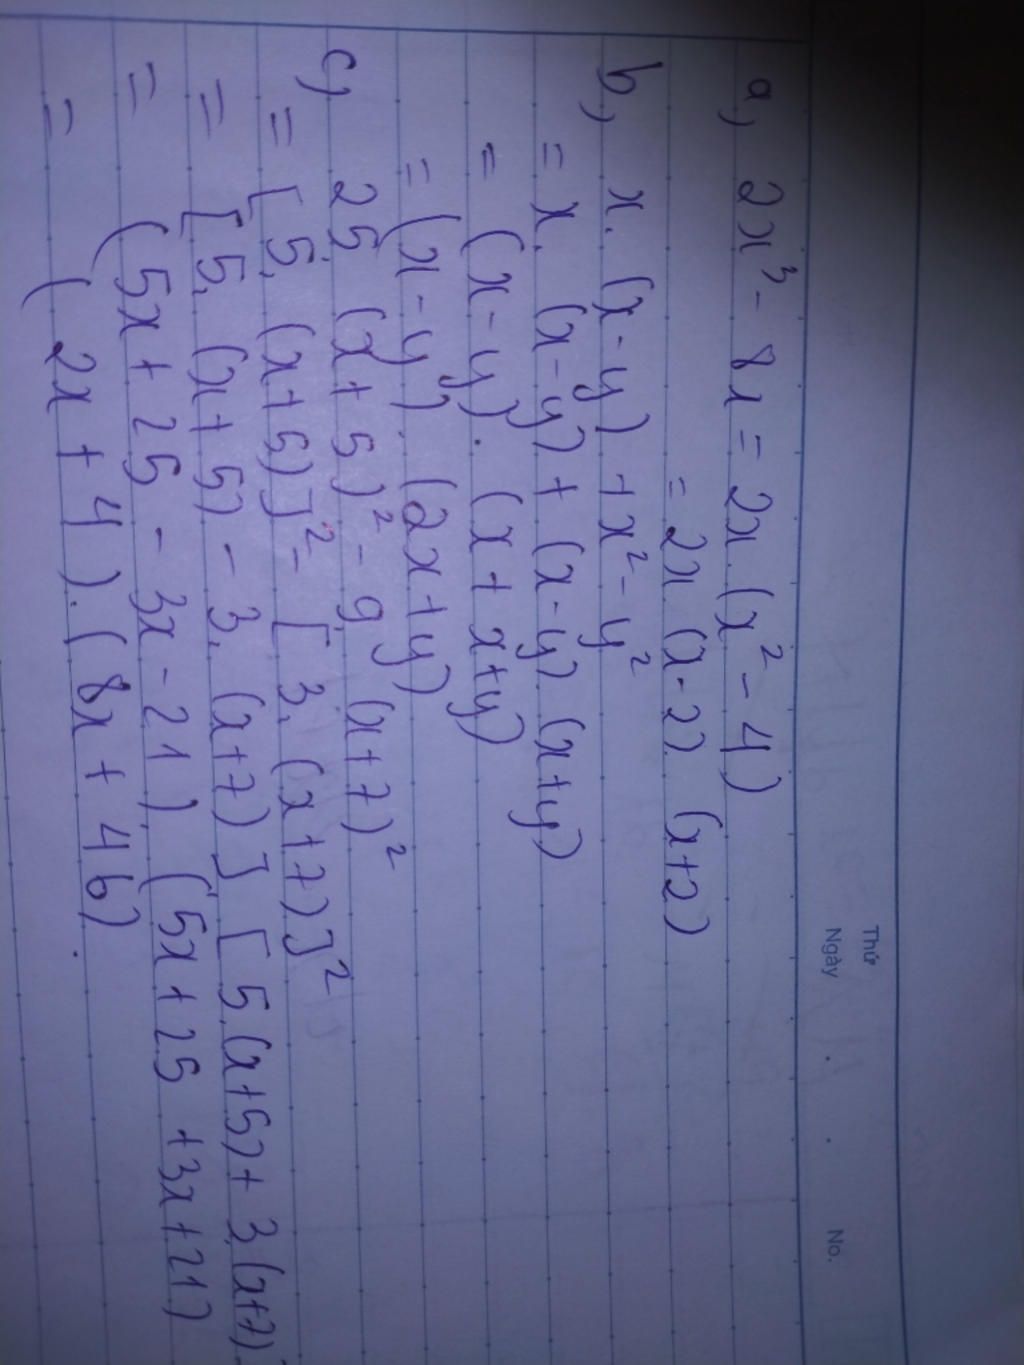 Thứ
Ngày . . No.
a, 2x³ - 8x = 2x.(x² - 4)
= 2x.(x-2).(x+2)
b, x.(x-y) + x² - y²
= x.(x-y) + (x-y).(x+y)
= (x-y).(x+x+y)
= (x-y).(2x+y)
c, 25.(x+5)² - 9.(x+7)²
= [5.(x+5)]² - [3.(x+7)]²
= [5.(x+5) - 3.(x+7)] [5.(x+5) + 3.(x+7)]
= (5x + 25 - 3x - 21).(5x + 25 + 3x + 21)
= (2x + 4).(8x + 46).